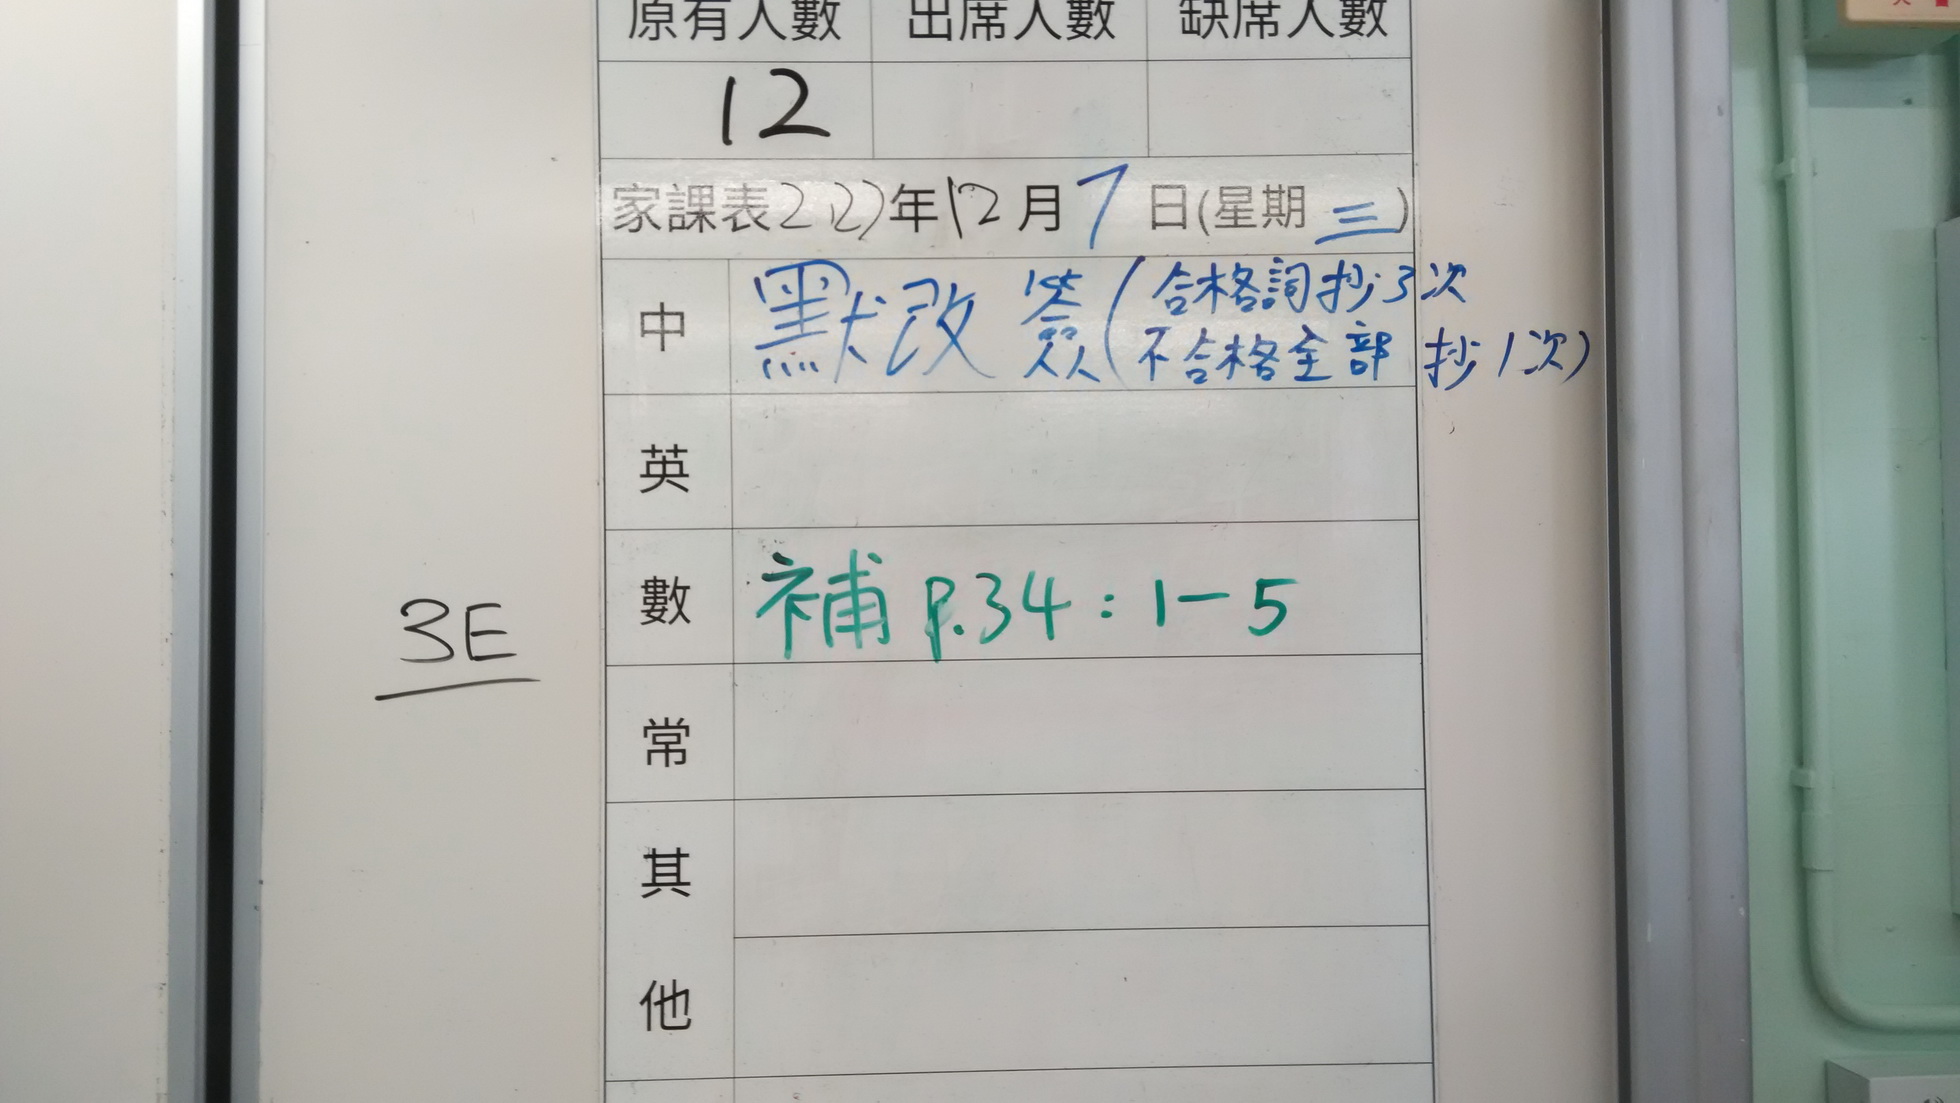 原有人數 出席人數 缺席人數
12
家課表2022年12月7日(星期三)
中 默改簽(合格詞抄3次
不合格全部抄1次)
英
數 補 P.34:1-5
3E
常
其
他